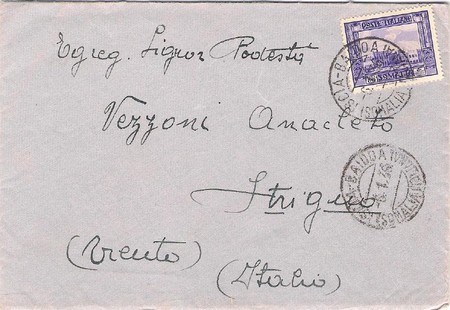 POSTE ITALIANE
SOMALIA
SCIA-BAIDOA
(SOMALIA)
Egreg. Signor Podestà
Vezzoni Anacleto
Strigno
(Trento)
(Italia)
BAIDOA
(SOMALIA)